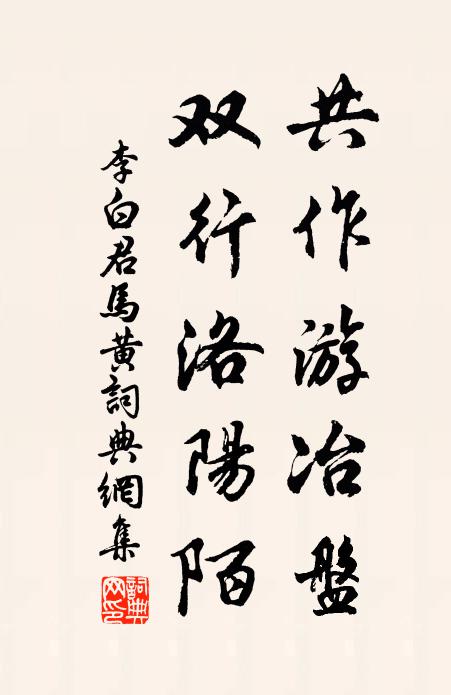 共作游冶盤
双行洛陽陌
李白君馬黄詞典網集
詞典網印